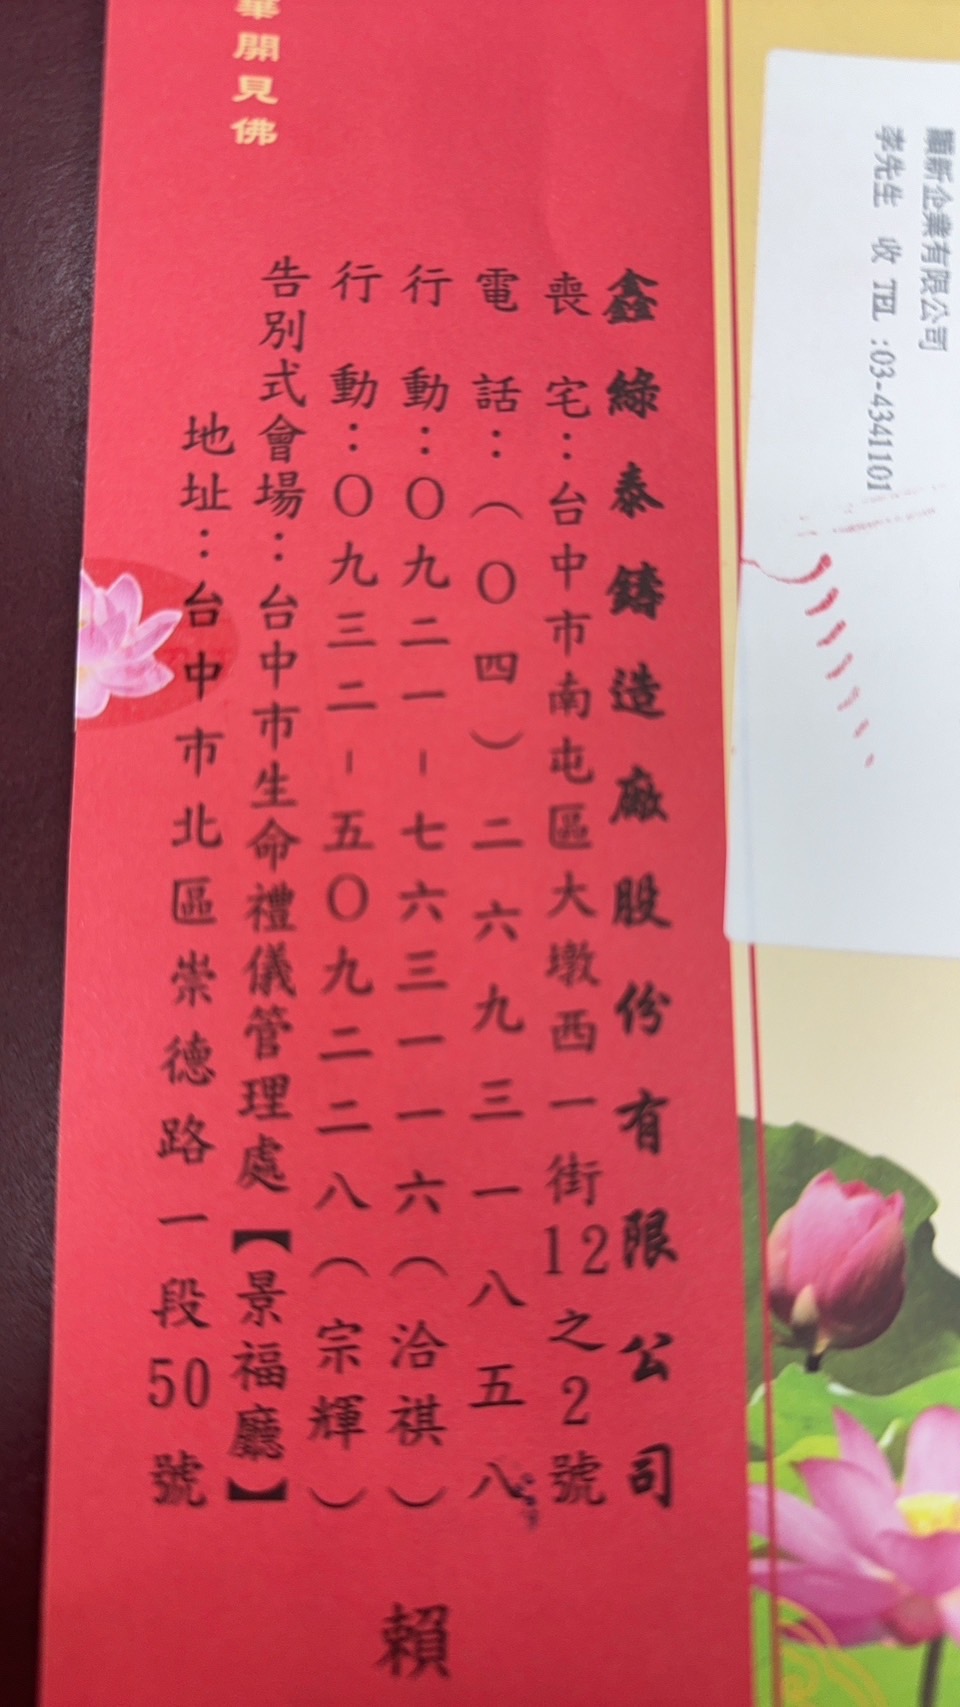 爾新企業有限公司
李先生 收 TEL :03-4341101
鑫綠泰鑄造廠股份有限公司
喪宅：台中市南屯區大墩西一街12之2號
電話：（〇四）二六九三一八五八
行動：〇九二一－七六三一一六（洽祺）
行動：〇九三二－五〇九二二八（宗輝）
告別式會場：台中市生命禮儀管理處【景福廳】
地址：台中市北區崇德路一段50號
賴
開見佛